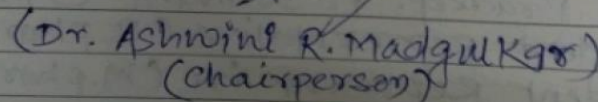 (Dr. Ashwini R. Madgulkar)
(Chairperson)